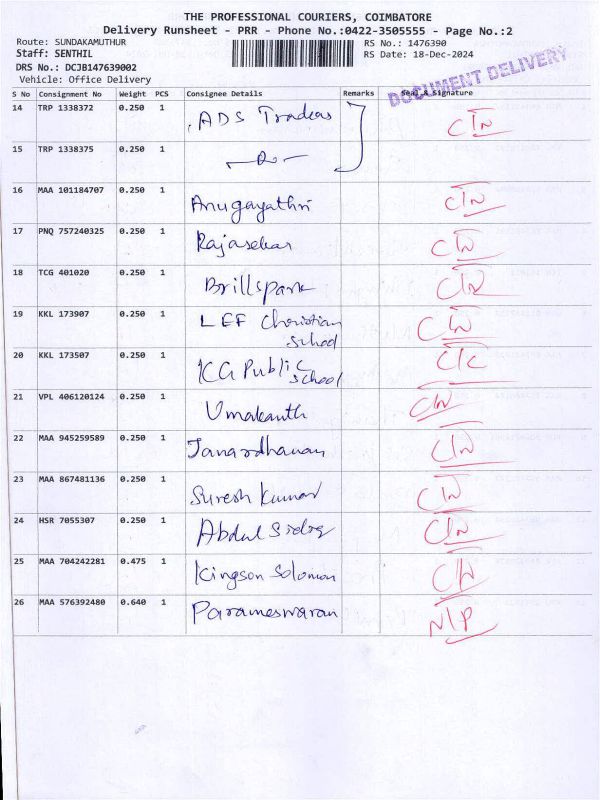 THE PROFESSIONAL COURIERS, COIMBATORE
Delivery Runsheet - PRR - Phone No.:0422-3505555 - Page No.:2
Route: SUNDAKAMUTHUR
RS No.: 1476390
Staff: SENTHIL
RS Date: 18-Dec-2024
DRS No.: DCJB147639002
Vehicle: Office Delivery
DOCUMENT DELIVERY
S No Consignment No Weight PCS Consignee Details Remarks Seal & Signature
14 TRP 1338372 0.250 1 ADS Traders
15 TRP 1338375 0.250 1 -Do-
16 MAA 101184707 0.250 1 Anugayathri
17 PNQ 757240325 0.250 1 Rajasekar
18 TCG 401020 0.250 1 Brillspark
19 KKL 173907 0.250 1 LEF Christian
School
20 KKL 173507 0.250 1 KG Public
School
21 VPL 406120124 0.250 1 Umakanth
22 MAA 945259589 0.250 1 Janardhanan
23 MAA 867481136 0.250 1 Suresh Kumar
24 HSR 7055307 0.250 1 Abdul
25 MAA 704242281 0.475 1 Kingson Solomon
26 MAA 576392480 0.640 1 Parameswaran N/P